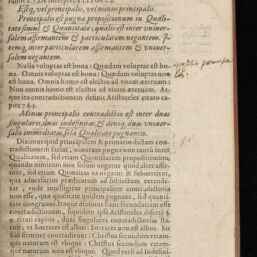 Estq́; vel principalis, vel minus principalis.
Principalis est pugna propositionum in Quali-
tate simul & Quantitate, qualis est inter vniuer-
salem affirmantem & particularem negantem. I-
temq́, inter particularem affirmantem & vniuer-
salem negantem.
Nulla voluptas est bona: Quædam voluptas est
bona. Omnis voluptas est bona: Quædam voluptas non
est bona. Omnis homo est electus ad vitam æternam.
Non omnis homo est electus ad vitam æternam. At-
que ita contradictionem definit Aristoteles citato
capite 7. & 4.
Minus principalis contradictio est inter duas
singulares, duas indefinitas, & deniq́; duas vniuer-
sales immediatas sola Qualitate pugnantes.
Diximus quod principalem & primario dictam con-
tradictionem faciat, nimirum pugna non tantum inter
Qualitatem, sed etiam Quantitatem propositionum:
quando nimirum non solum negatur quod alter affir-
mat, sed etiam Quantitas ea negatur & subuertitur,
qua aduersarius prædicatum ad subiectum extendi-
tur, vnde intelligitur principaliter contradictoria
non esse, quæ qualitate quidem pugnant, sed quanti-
tate congruunt. Itaque duæ tamen secundariam esse
contradictionem, siquidem ipse Aristoteles
citati capitis, duas singulares contradictorias sta-
tuit, vt Socrates est albus: Socrates non est albus. Sic
sibi contradicunt istæ: Christus secundum vtram-
que naturam est vbique: Christus secundum vtram-
que naturam non est vbique. Quod vero ad Indefini-